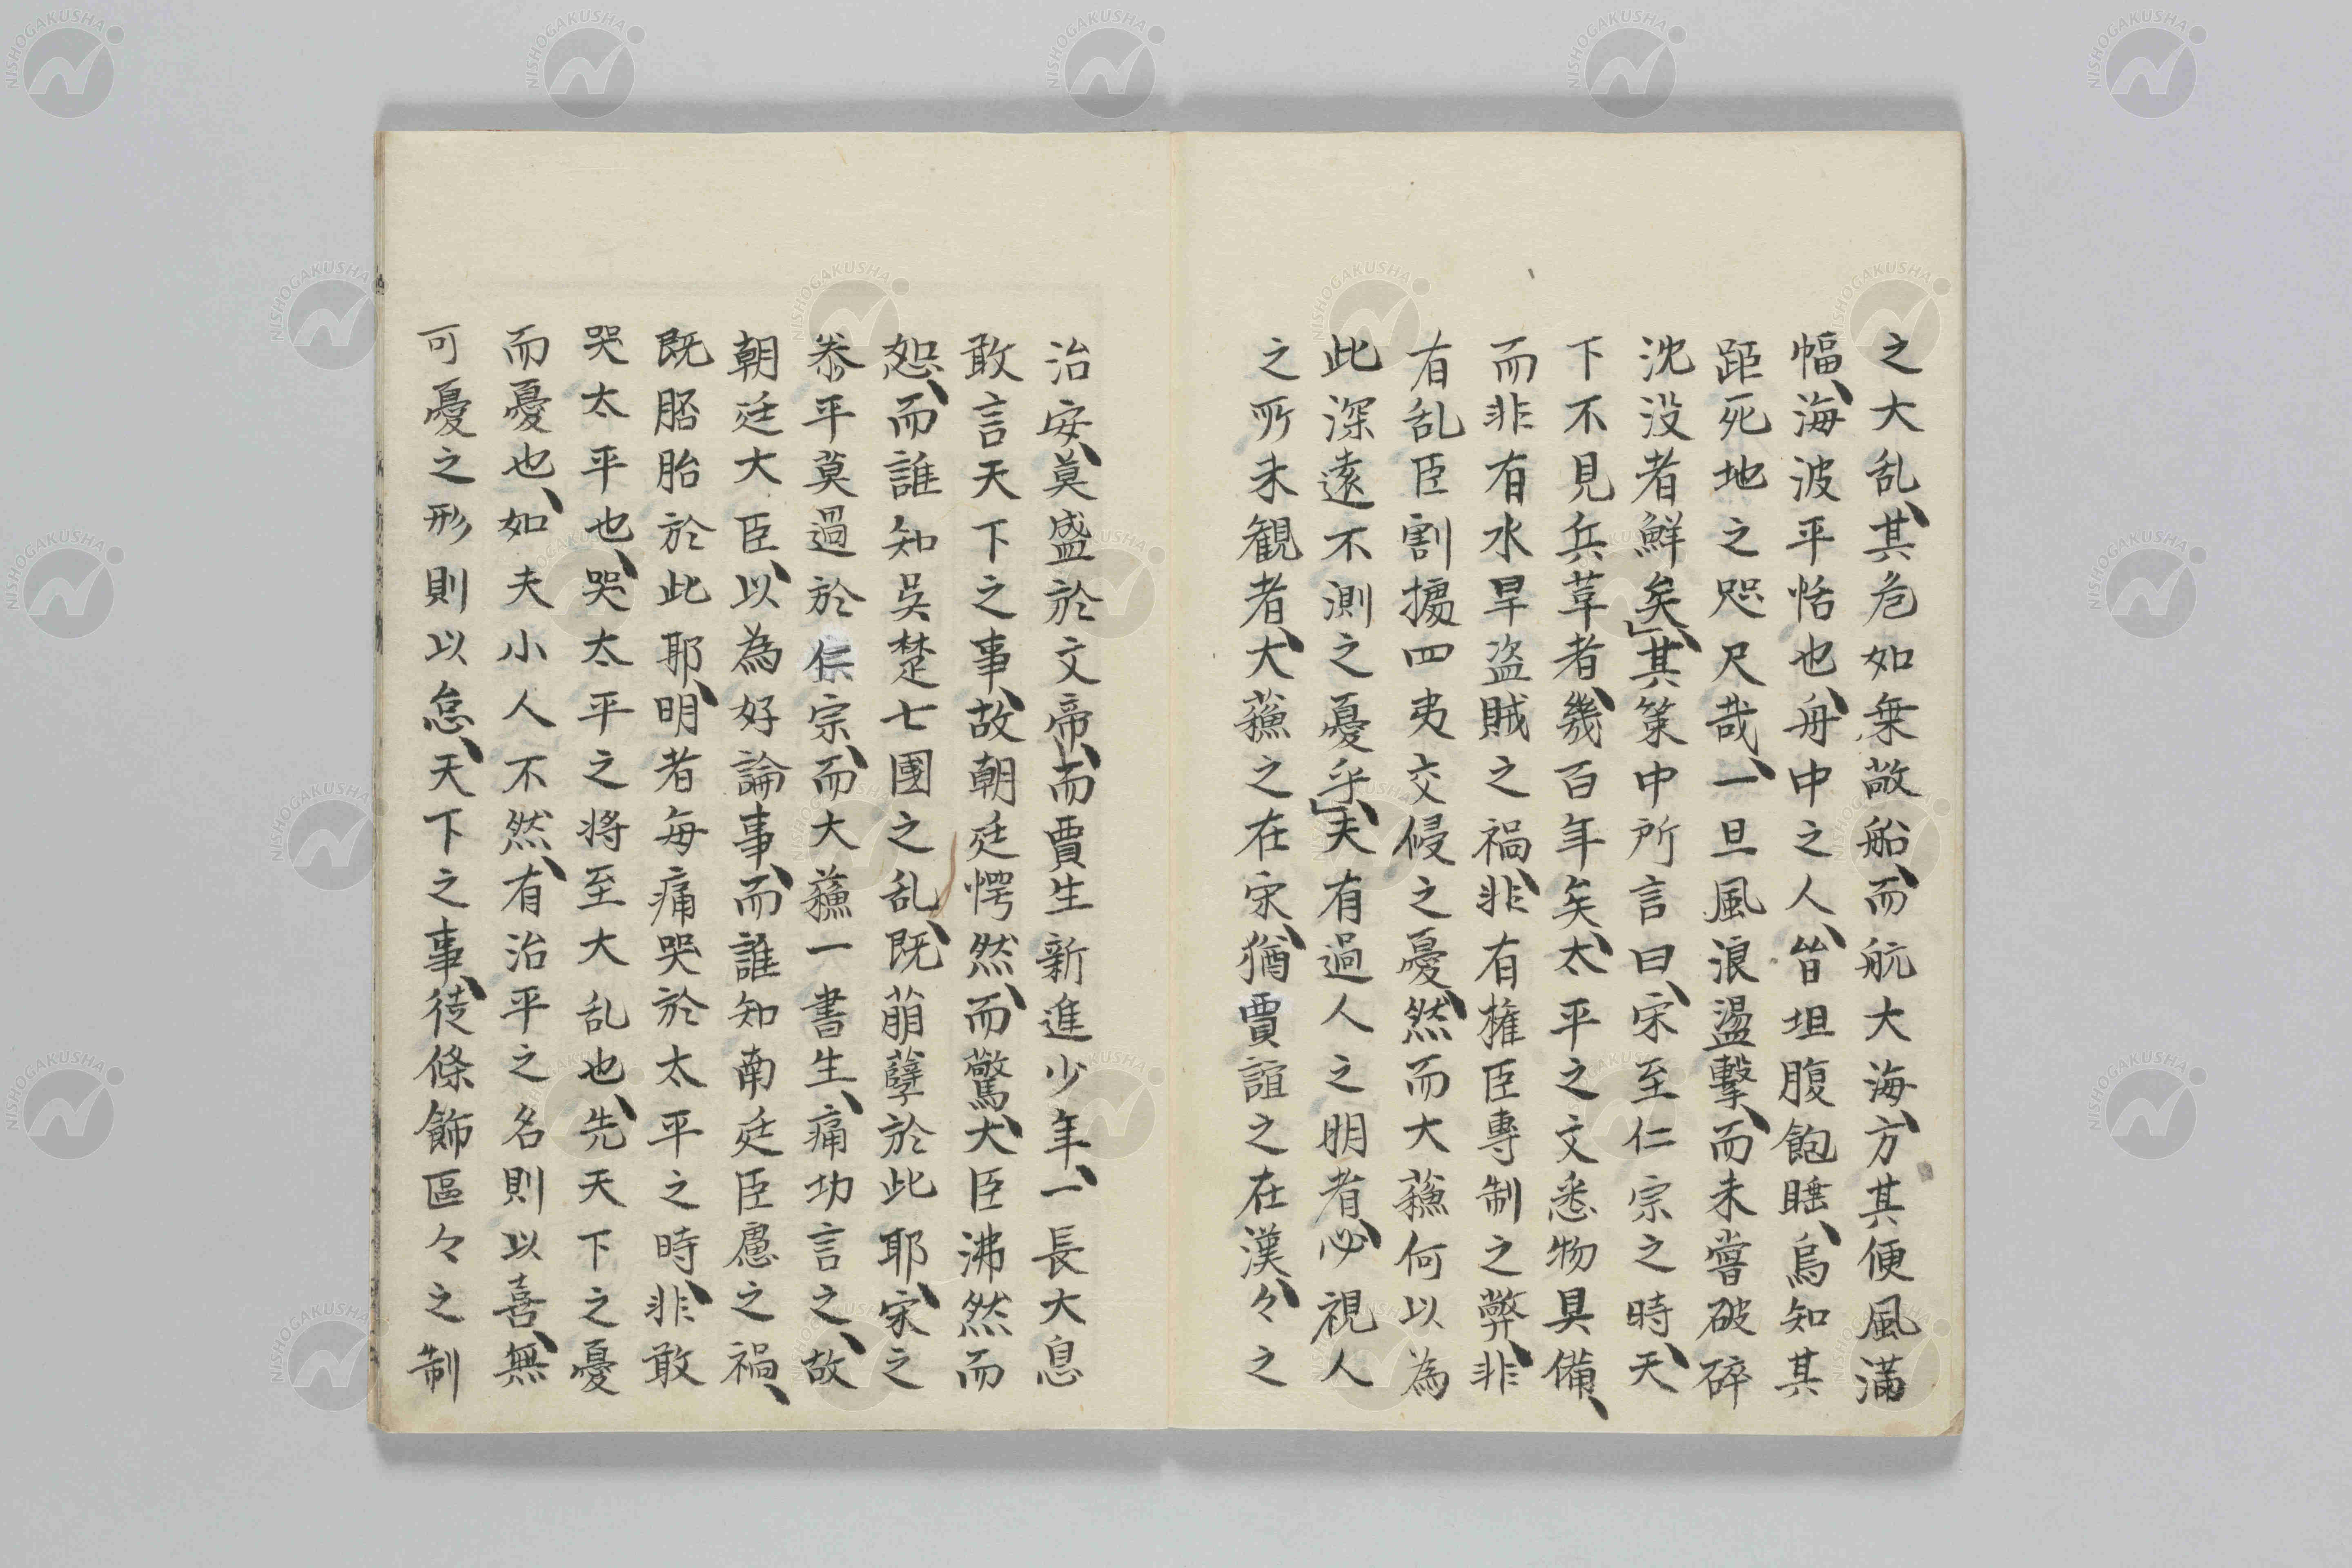 之大乱、其危如乗敝船、而航大海、方其便風滿
幅、海波平恬也、舟中之人、皆坦腹飽睡、烏知其
距死地之咫尺哉、一旦風浪盪擊、而未嘗破碎
沈没者鮮矣」、其策中所言曰、宋至仁宗之時、天
下不見兵革者、幾百年矣、太平之文悉物具備、
而非有水旱盗賊之禍、非有権臣專制之弊、非
有乱臣割據四夷交侵之憂、然而大蘓何以為
此深遠不測之憂乎」、夫有過人之明者、必視人
之所未観者、大蘓之在宋、猶賈誼之在漢、々之
治安、莫盛於文帝、而賈生新進少年、一長大息
敢言天下之事、故朝廷愕然、而驚、大臣沸然而
怨、而誰知吳楚七國之乱、既萠孽於此耶、宋之
泰平莫過於仁宗、而大蘓一書生、痛功言之、故
朝廷大臣、以為好論事、而誰知南廷臣慮之禍、
既胚胎於此耶、明者每痛哭於太平之時、非敢
哭太平也、哭太平之将至大乱也、先天下之憂
而憂也、如夫小人不然、有治平之名則以喜、無
可憂之形則以怠、天下之事、徒條飾區々之制
NISHOGAKUSHA